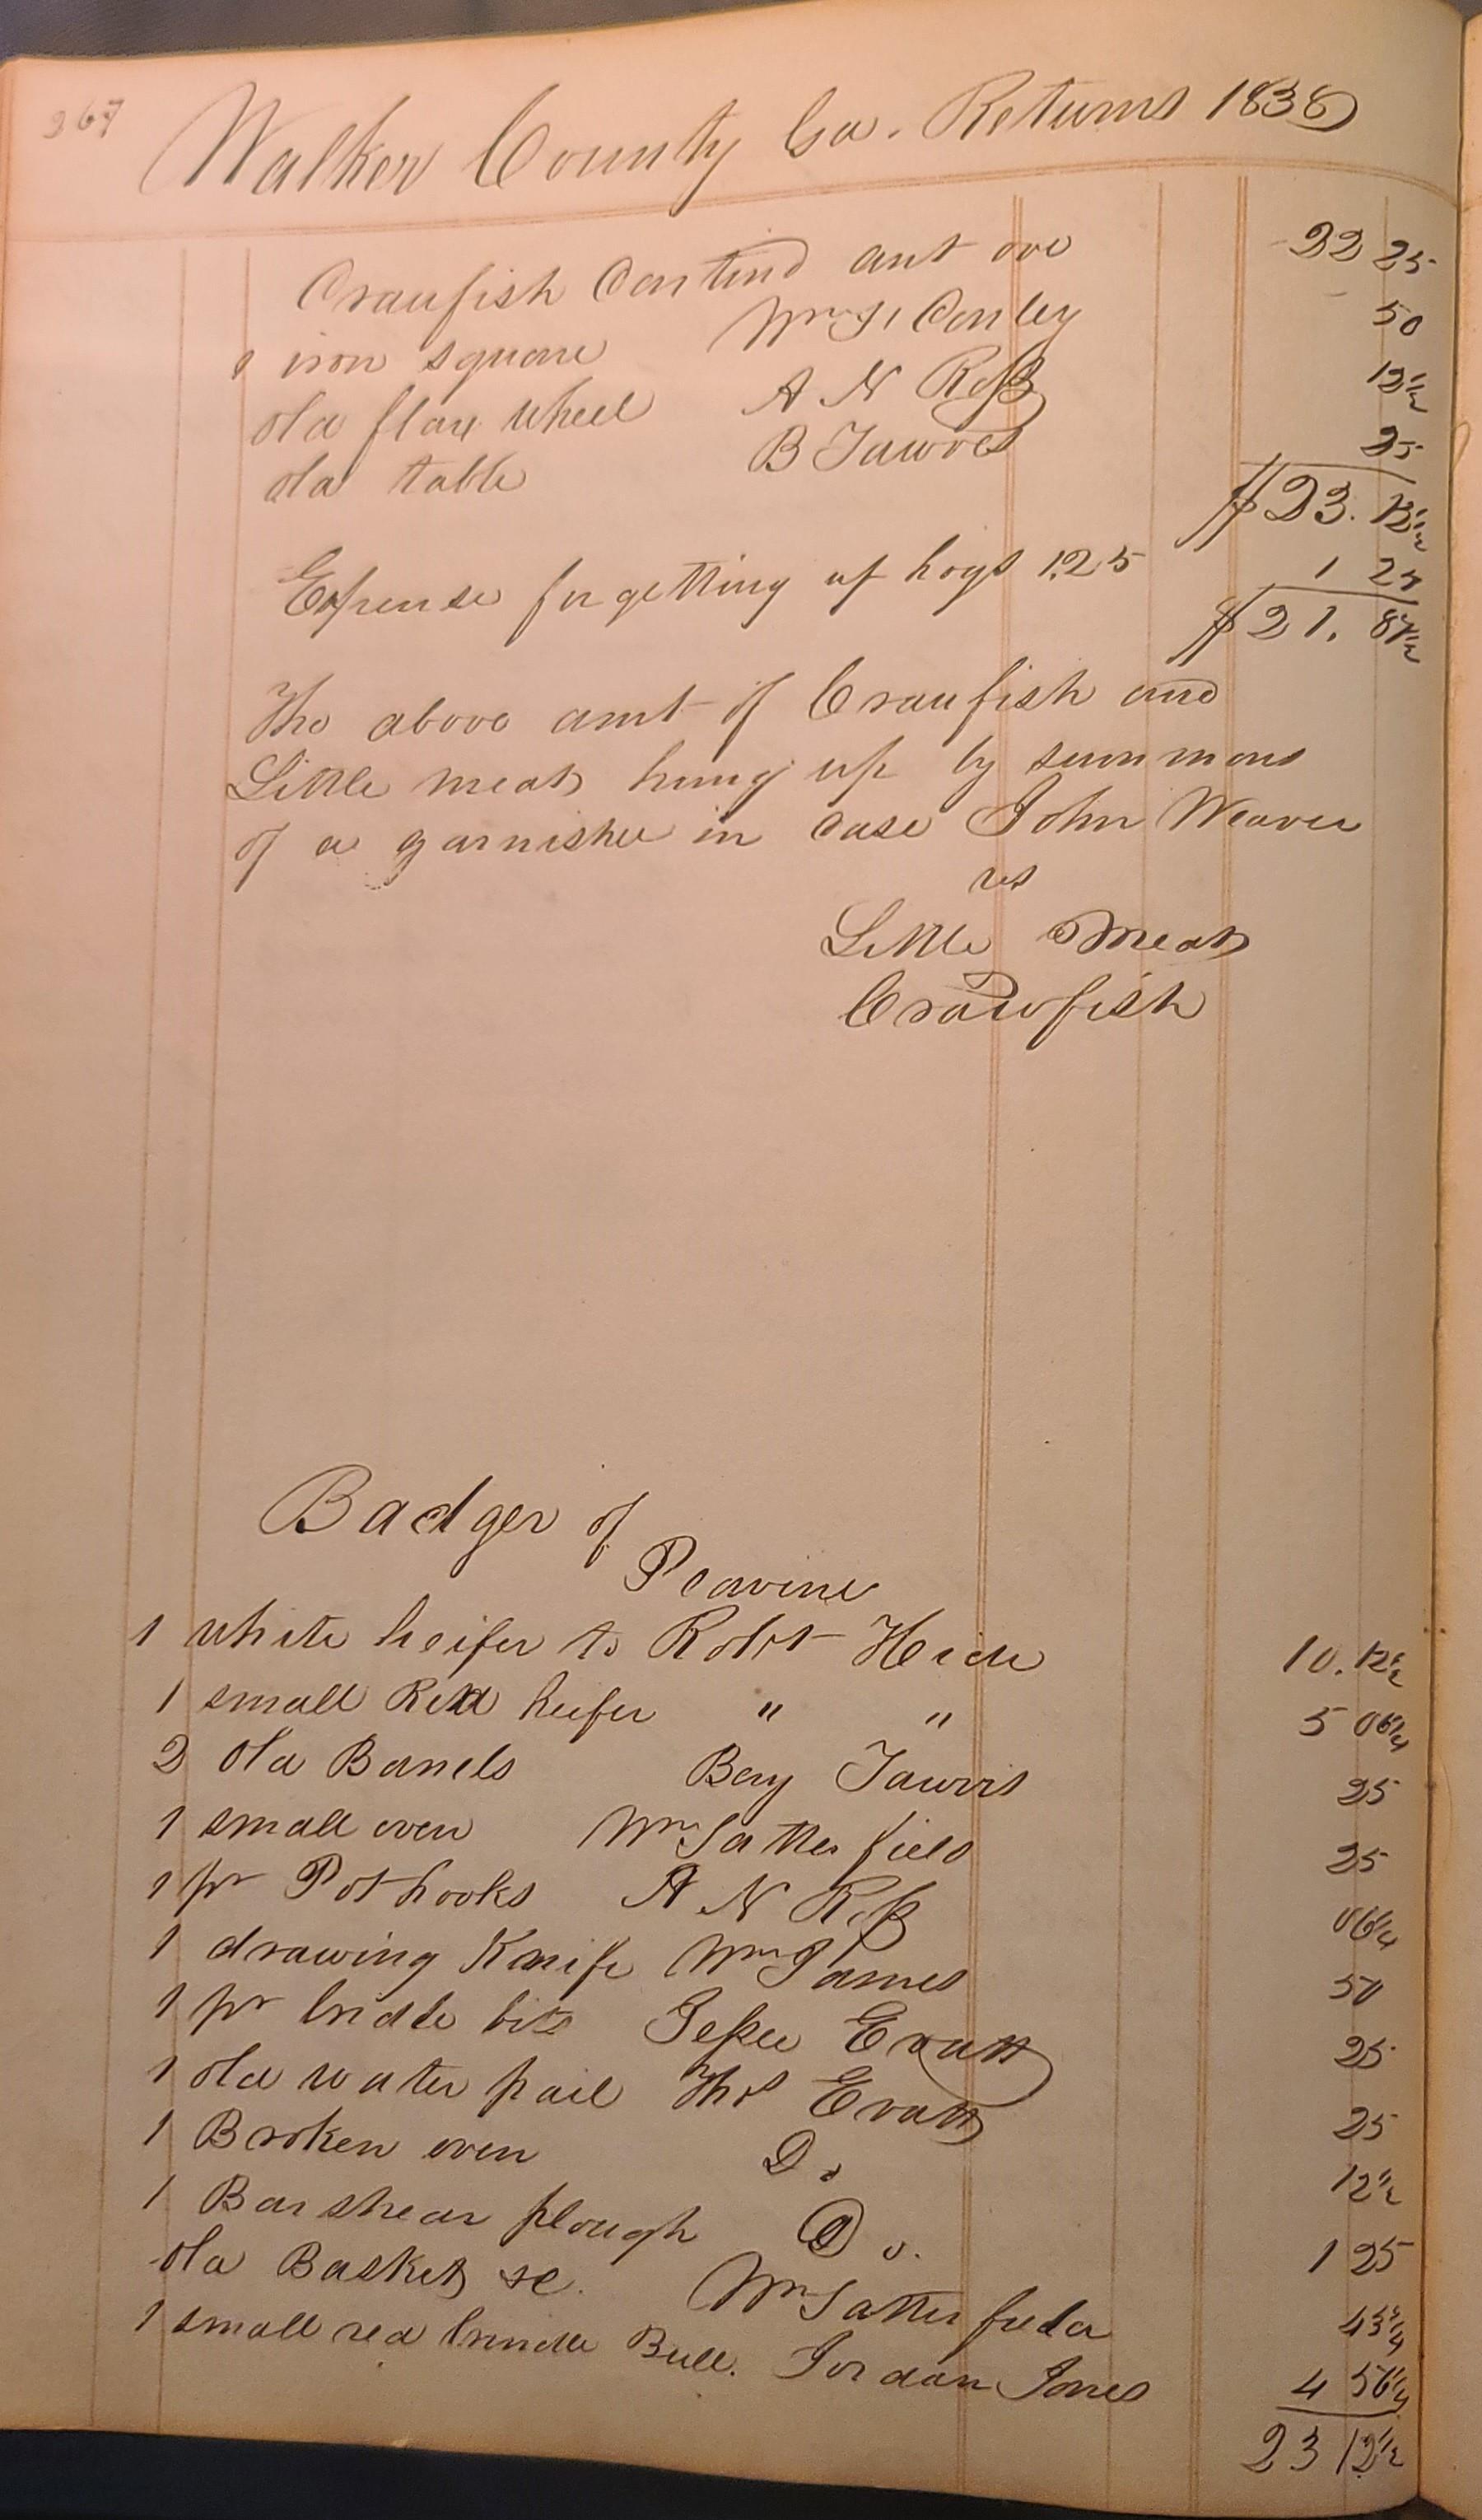 367
Walker County Ga. Returns 1838
Craufish Contind amt ove 22 25
1 iron square Wm S. Conley 50
old flax wheel A N Ross 12½
old table B Jawves 25
$23. 12½
Expense for getting up hogs 1.25 1 25
$21. 87½
The above amt of Craufish and
Little meat hung up by summons
of a garnishee in case John Weaver
vs
Little Meat
Crawfish
Badger of
Peavine
1 white heifer to Robt 10.12½
1 small Red heifer " " 5 06¼
2 old Barrels Jawvis 25
1 small oven Wm Satterfield 25
1 pr Pot hooks A N Ross 06¼
1 drawing Knife Wm James 50
1 pr bridle bits Jessee Evatt 25
1 old water pail Thos Evatt 25
1 Broken oven Do 12½
1 Barshear plough Do. 1 25
old Baskets &c. Wm Satterfield 43¾
1 small red brindle Bull. Jordan Jones 4 56¼
23 12½